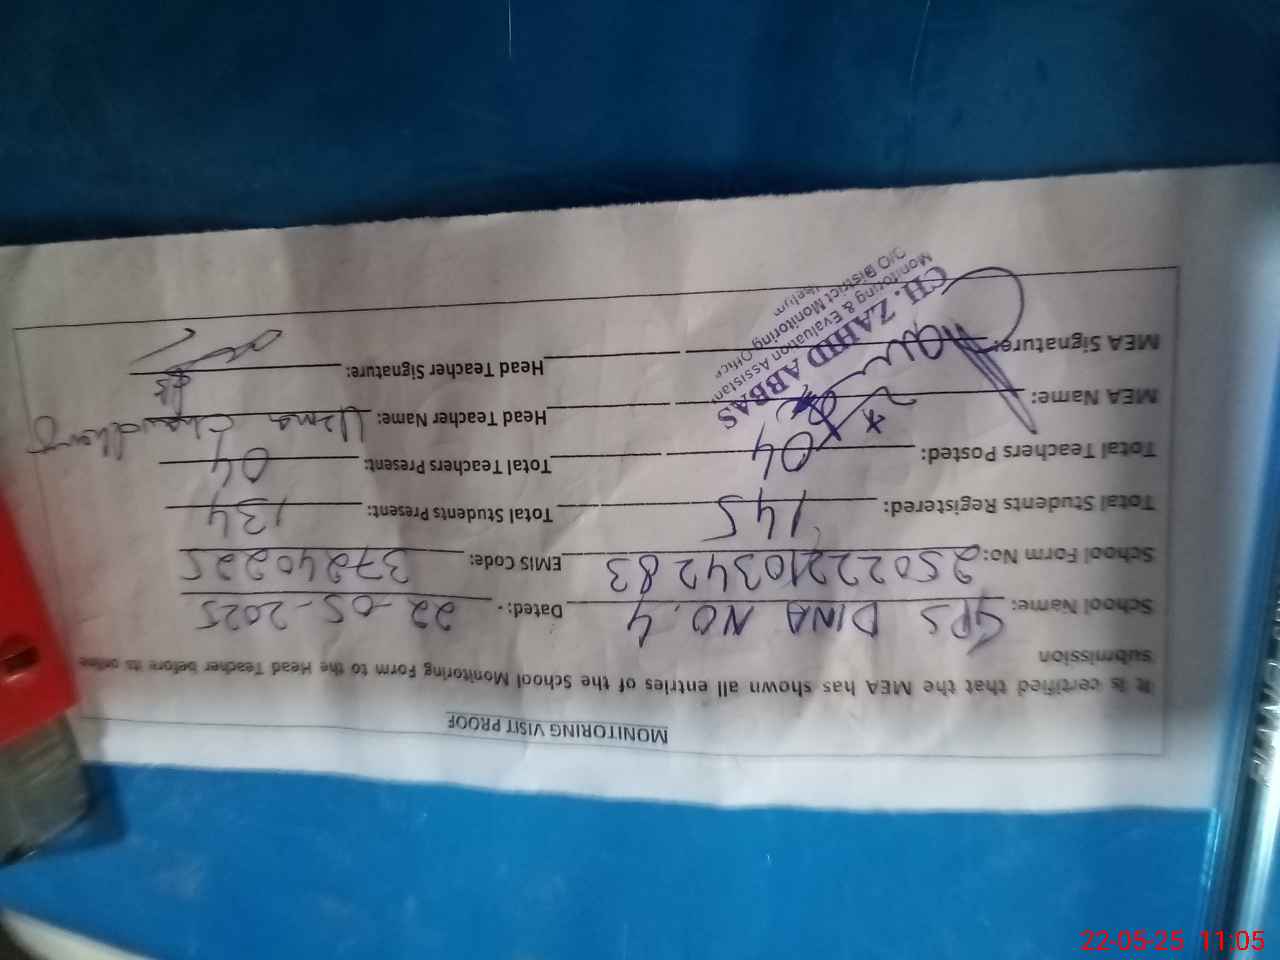 MONITORING VISIT PROOF
It is certified that the MEA has shown all entries of the School Monitoring Form to the Head Teacher before its online
submission
School Name: GPS DINA NO. 4 Dated:- 22-05-2025
School Form No: 250221034283 EMIS Code: 37240225
Total Students Registered: 145 Total Students Present: 134
Total Teachers Posted: 04 Total Teachers Present: 04
MEA Name: Head Teacher Name: Uzma Chaudhary
MEA Signature: Head Teacher Signature:
CH. ZAHID ABBAS
Monitoring & Evaluation Assistant
O/O District Monitoring Office
Jhelum
22-05-25 11:05